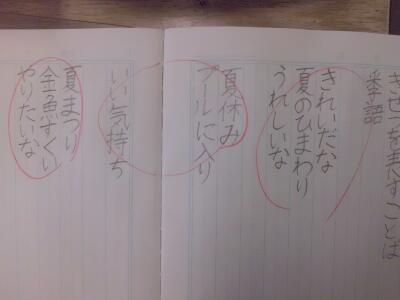 きせつを表すことば
季語
きれいだな
夏のひまわり
うれしいな
夏休み
プールに入り
いい気持ち
夏まつり
金魚すくい
やりたいな